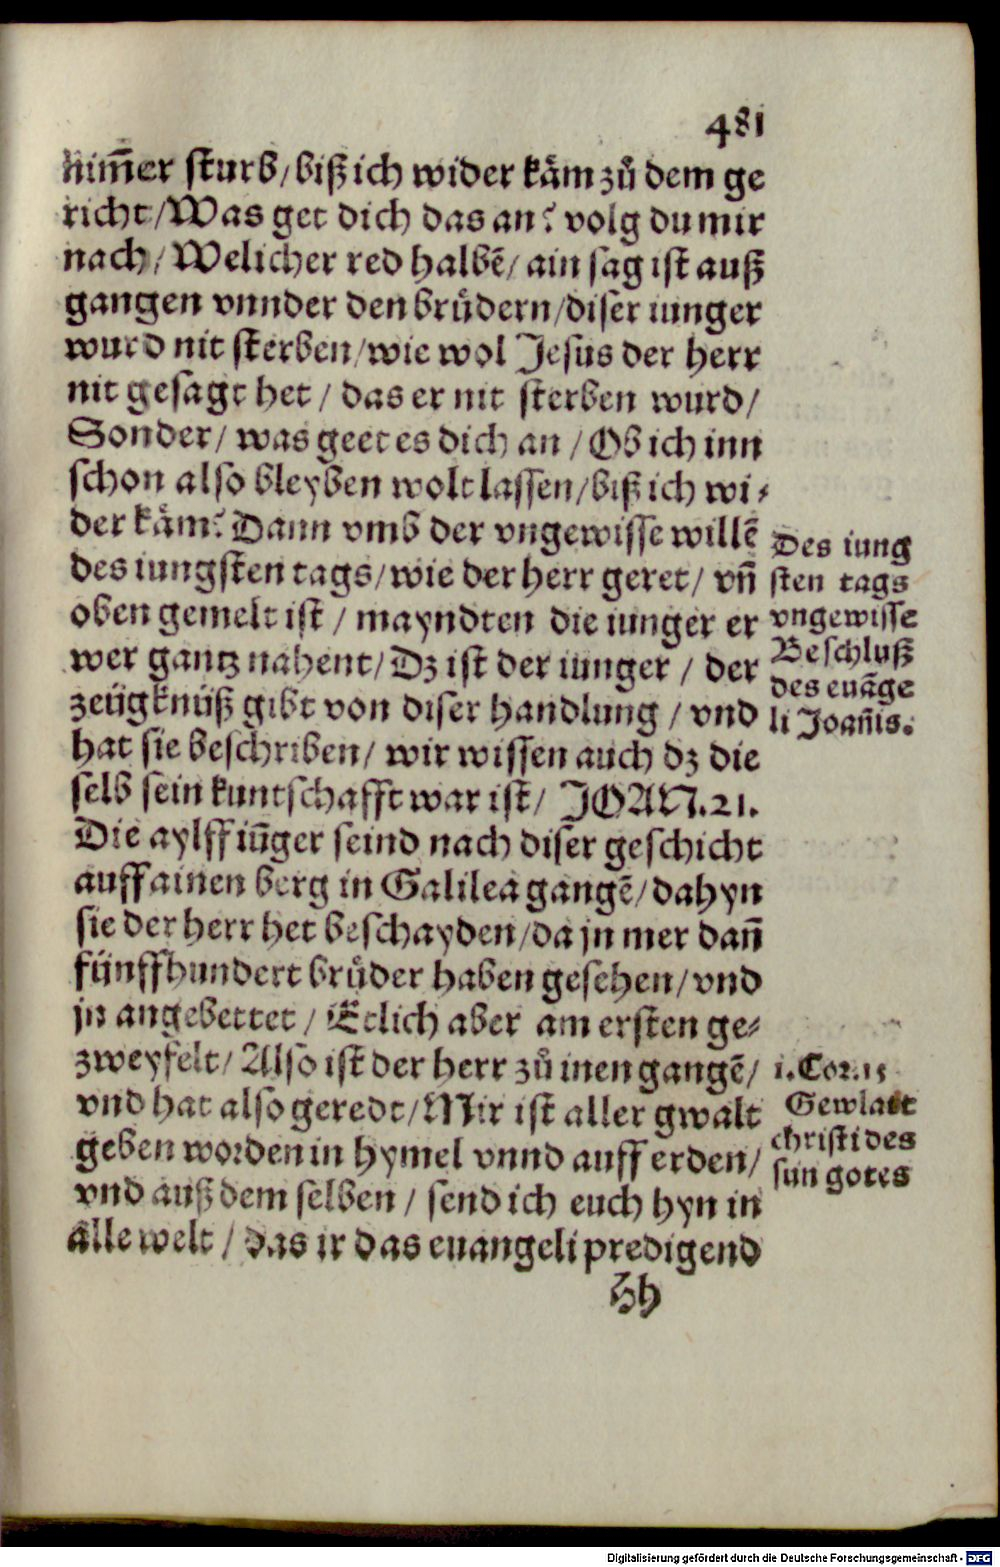 481
nim̃er sturb/biß ich wider kåm zů dem ge
richt/Was get dich das an? volg du mir
nach/Welicher red halbẽ/ain sag ist auß
gangen vnnder den brůdern/diser iunger
wurd nit sterben/wie wol Jesus der herr
nit gesagt het/das er nit sterben wurd/
Sonder/was geet es dich an/Ob ich inn
schon also bleyben wolt lassen/biß ich wi⸗
der kåm? Dann vmb der vngewisse willẽ
des iungsten tags/wie der herr geret/vñ
oben gemelt ist/mayndten die iunger er
wer gantz nahent/Dz ist der iunger/der
zeügknüß gibt von diser handlung/vnd
hat sie beschriben/wir wissen auch dz die
selb sein kuntschafft war ist/JOAN.21.
Die aylff iüger seind nach diser geschicht
auff ainen berg in Galilea gangẽ/dahyn
sie der herr het beschayden/da jn mer dañ
fünffhundert brůder haben gesehen/vnd
jn angebettet/Etlich aber am ersten ge⸗
zweyfelt/Also ist der herr zů inen gangẽ/
vnd hat also geredt/Mir ist aller gwalt
geben worden in hymel vnnd auff erden/
vnd auß dem selben/send ich euch hyn in
alle welt/das ir das euangeli predigend
Hh
Des iung
sten tags
vngewisse
Beschluß
des euãge
li Joañis.
1.Cor.15
Gewlatt
christi des
sun gotes
Digitalisierung gefördert durch die Deutsche Forschungsgemeinschaft - DFG